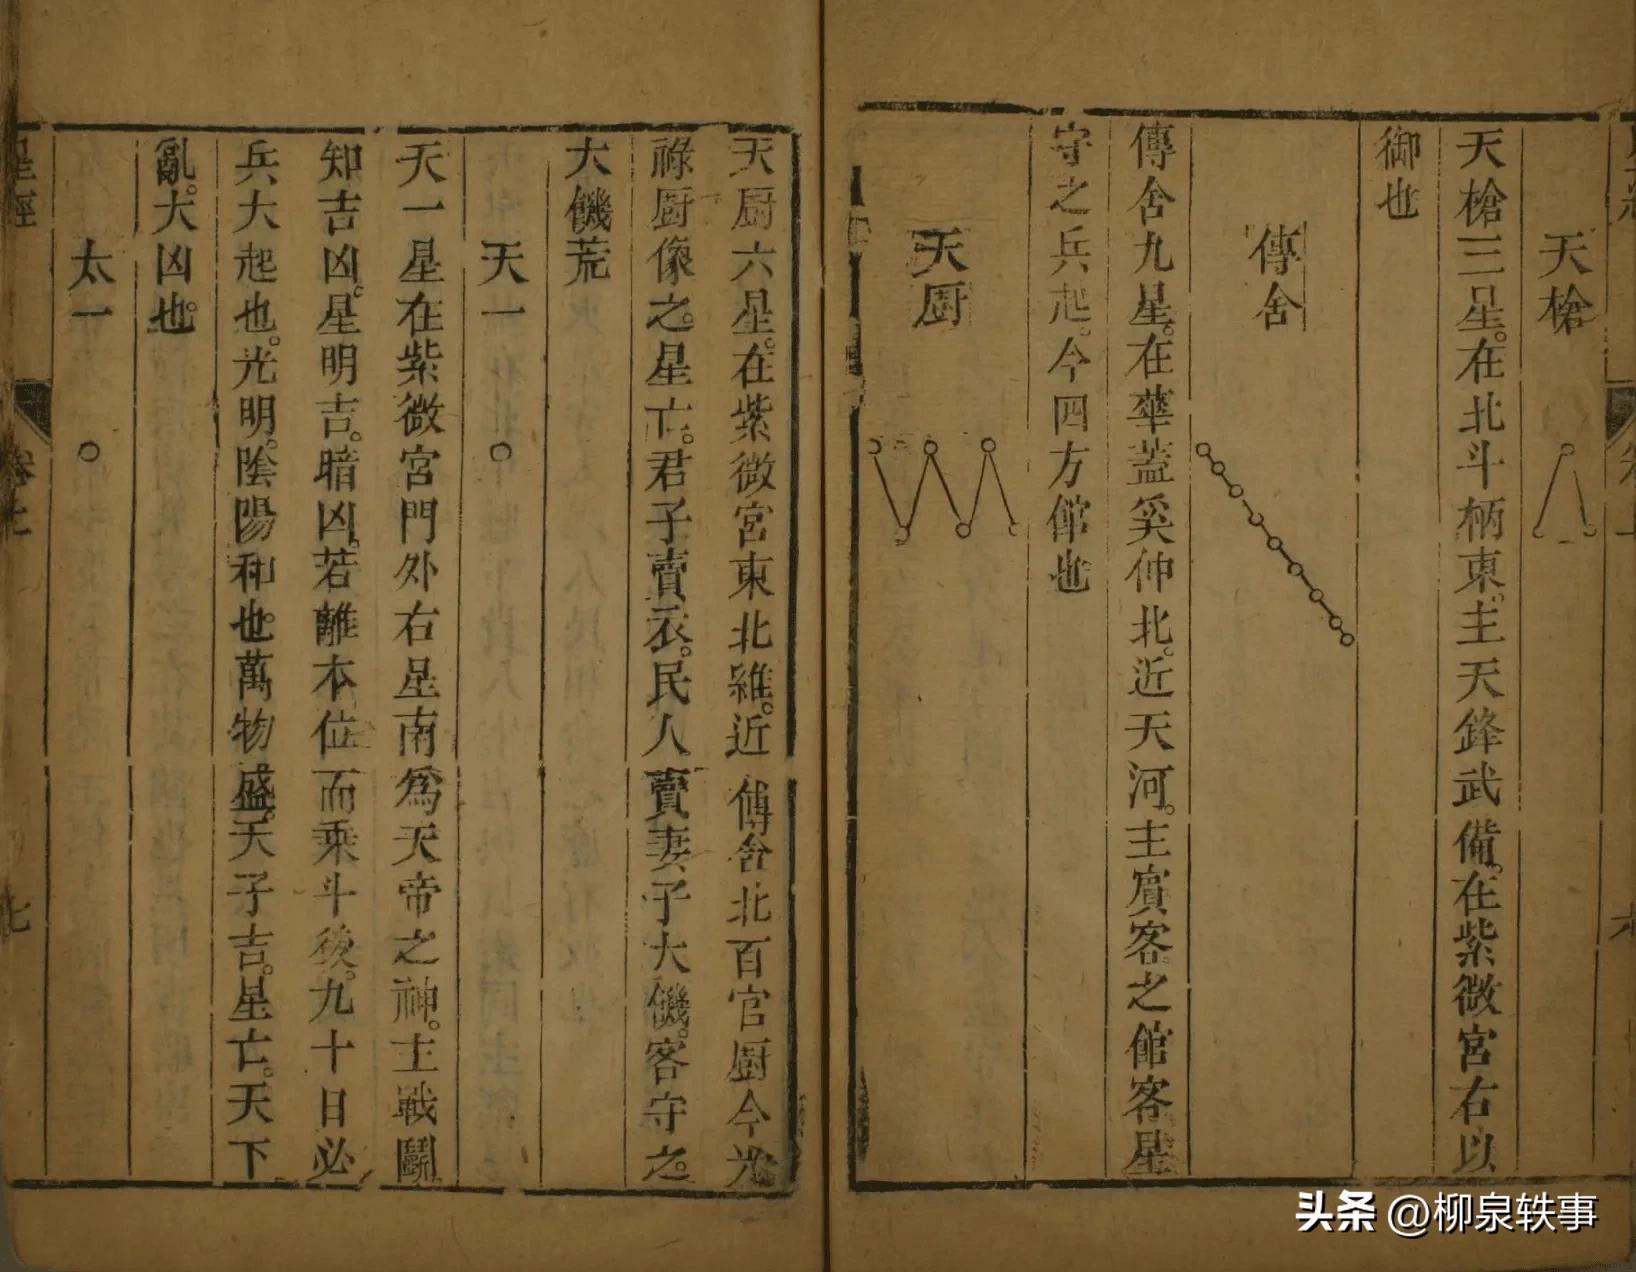 天槍
天槍三星。在北斗柄東。主天鋒武備。在紫微宮右以
御也
傳舍
傳舍九星。在華蓋奚仲北。近天河。主賓客之館客星
守之兵起。今四方館也
天厨
天厨六星。在紫微宮東北維。近傳舍北百官厨今光
祿厨像之。星亡。君子賣衣。民人賣妻子大饑。客守之。
大饑荒
天一
天一星在紫微宮門外右星南為天帝之神。主戰鬪
知吉凶。星明吉。暗凶。若離本位而乘斗後。九十日必
兵大起也。光明。陰陽和也。萬物盛。天子吉。星亡。天下
亂。大凶也。
太一
星經
卷上
七
头条 @柳泉轶事